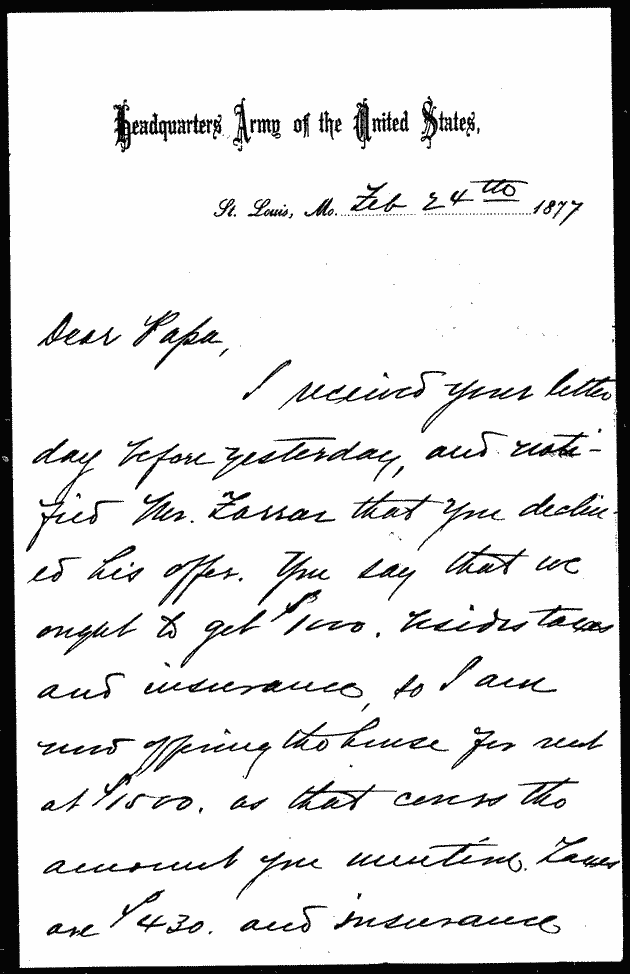 Headquarters Army of the United States,
St. Louis, Mo. Feb 24th 1877
Dear Papa,
I received your letter
day before yesterday, and noti-
fied Mr. Farrar that you declin-
ed his offer. You say that we
ought to get $1000. besides taxes
and insurance, so I am
now offering the house for rent
at $1500. as that covers the
amount you mention. Taxes
are $430. and insurance